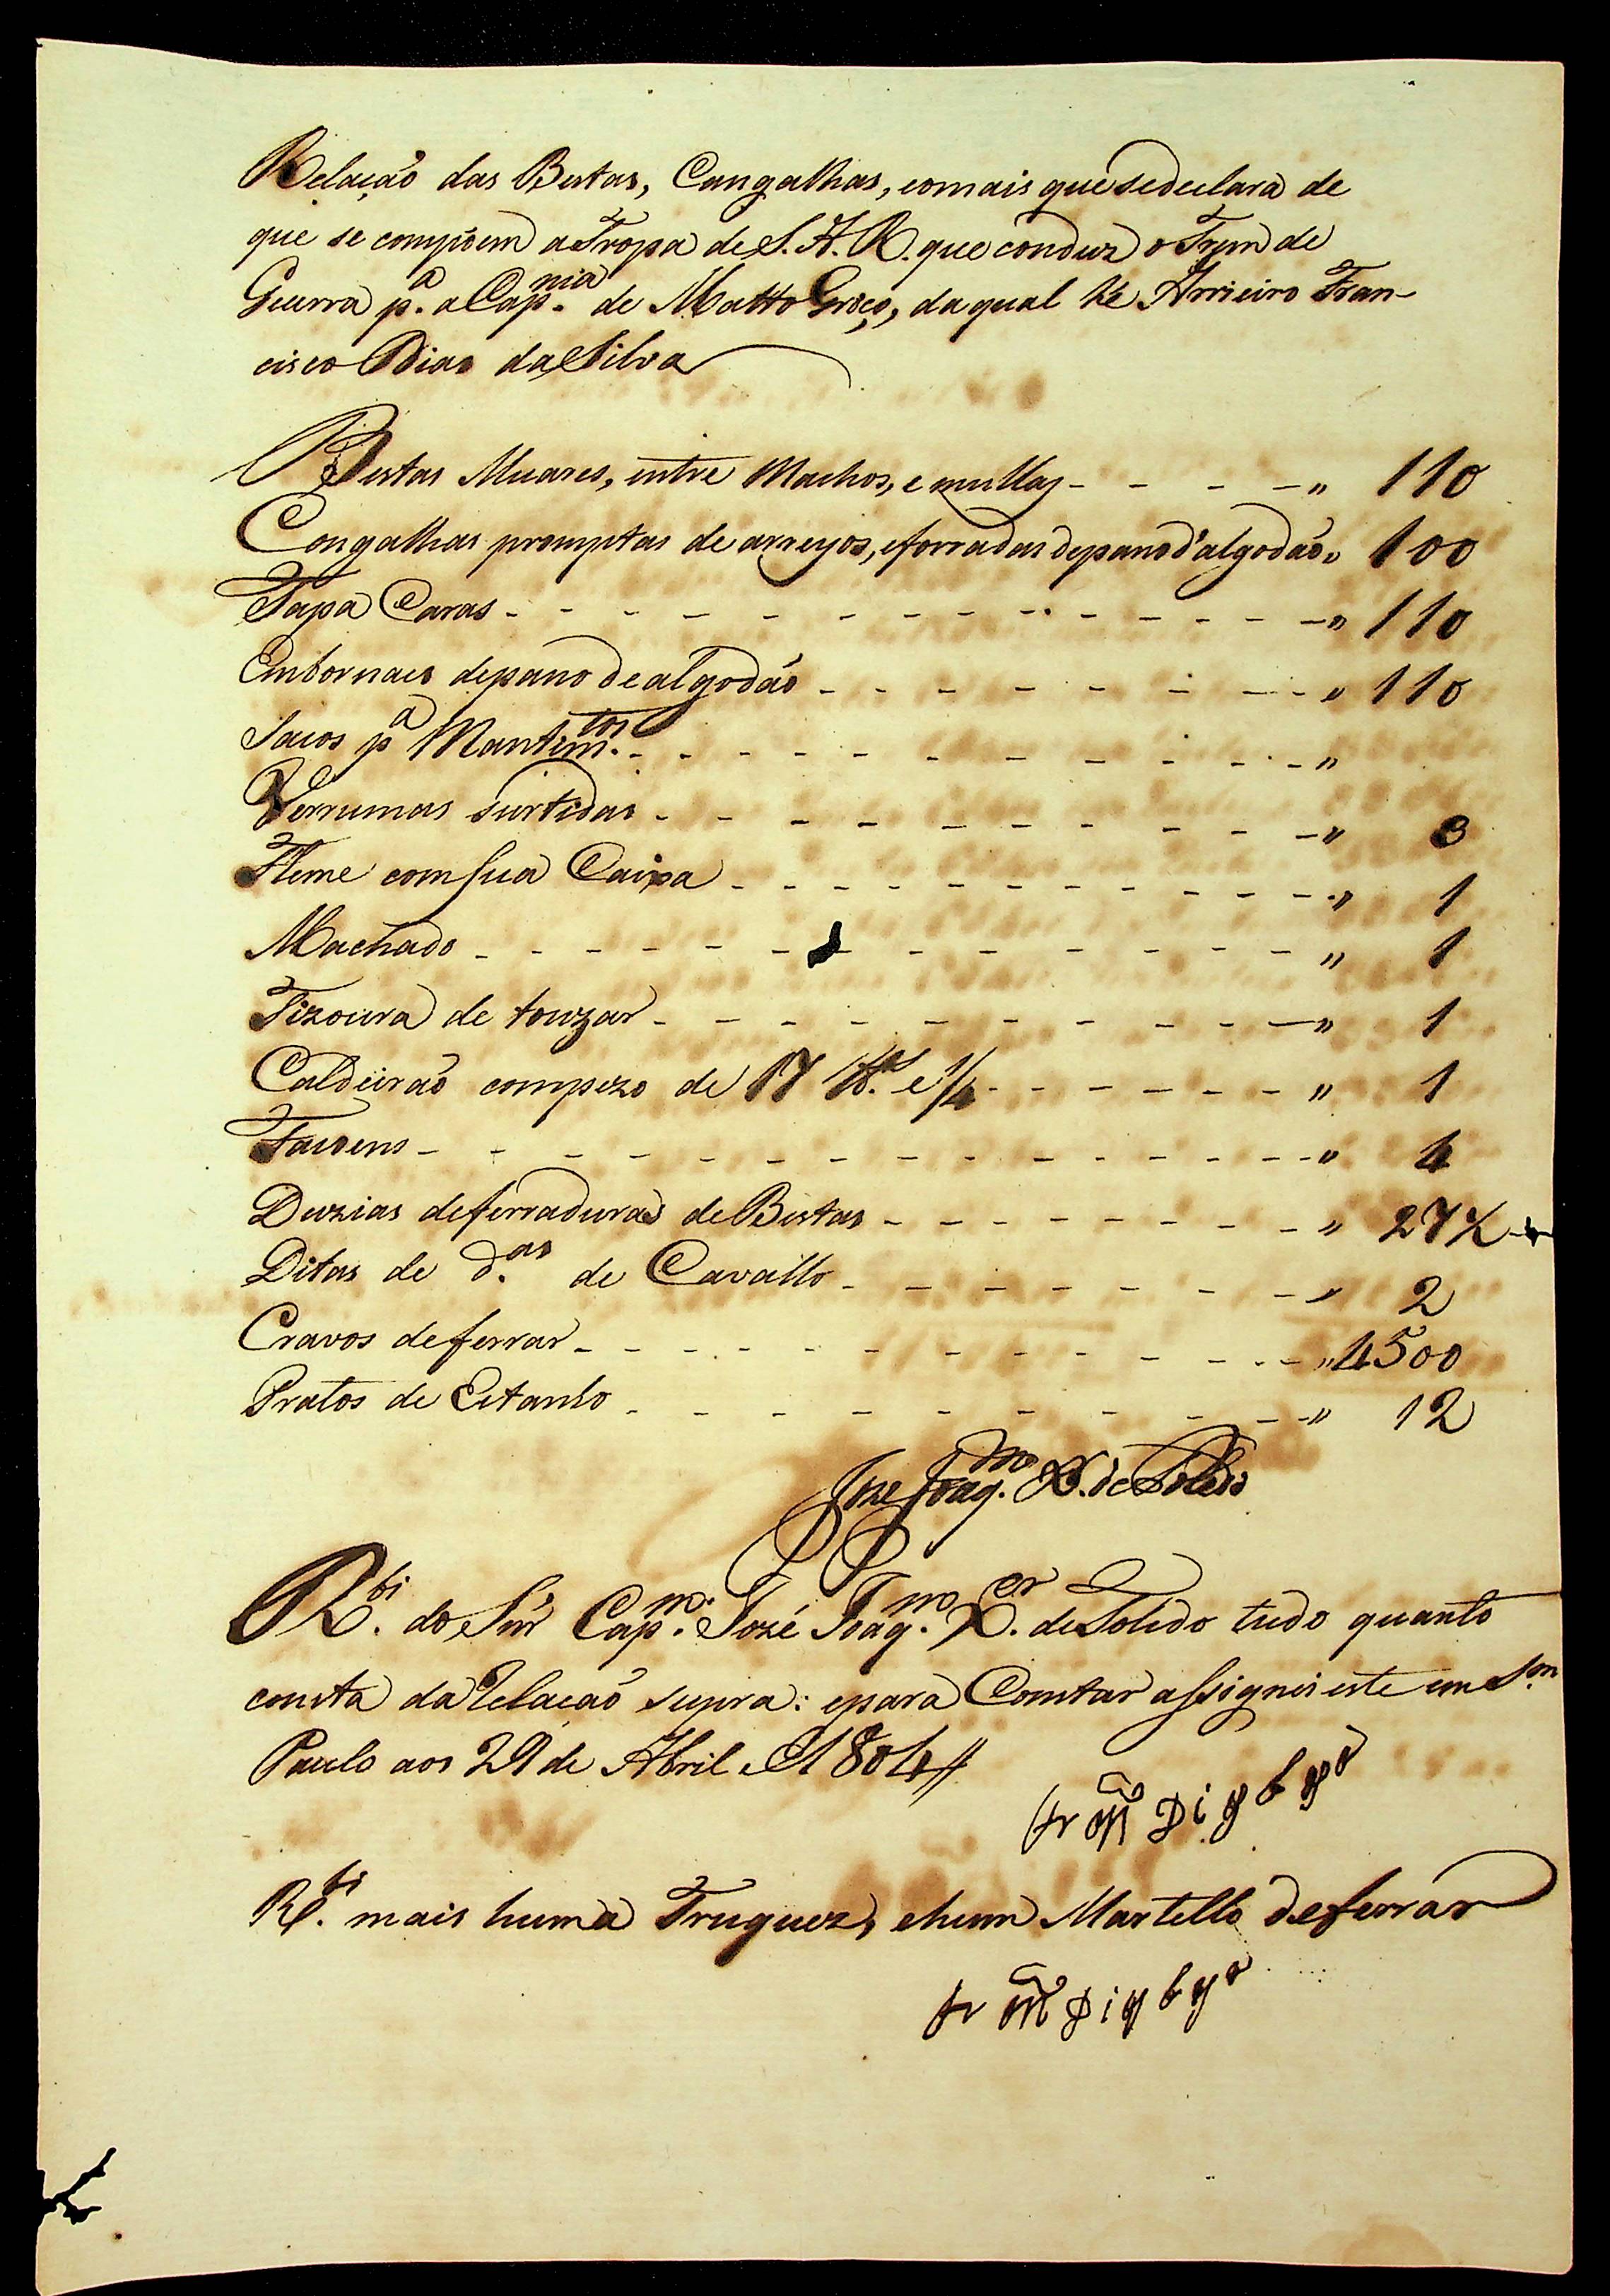 Relação das Bestas, Cangalhas, e o mais que se declara de
que se compoem a Tropa de S. A. R. que conduz o Trem de
Guerra p.ª a Cap.nia de Matto Groço, da qual he Arrieiro Fran-
cisco Dias da Silva
Bestas Muares, entre Machos, e mullas - - - - " 110
Cangalhas promptas de arreyos, e forradas de pano d'algodão " 100
Tapa Caras - - - - - - - - - - - - " 110
Embornaes de pano de algodão - - - - - - - - " 110
Sacos p.ª Mantim.tos - - - - - - - - - - "
Verrumas surtidas - - - - - - - - - - " 3
Fleme com sua Caixa - - - - - - - - - - " 1
Machado - - - - - - - - - - - - " 1
Tizoura de touzar - - - - - - - - - " 1
Caldeirão com pezo de 17 lb.as e 1/4 - - - - - - " 1
Facoens - - - - - - - - - - - - - " 4
Duzias de ferraduras de Bestas - - - - - - - - " 27 1/2
Ditas de d.as de Cavallo - - - - - - - - " 2
Cravos de ferrar - - - - - - - - - - - " 4500
Pratos de Estanho - - - - - - - - - - " 12
Joze Joaq.m X. de Toledo
R.bi do Snr Cap.m José Joaq.m X.er de Toledo tudo quanto
consta da relação supra: e para Constar assignei este em S.m
Paulo aos 29 de Abril de 1804
R.bi mais huma Truquez, e hum Martello de ferrar